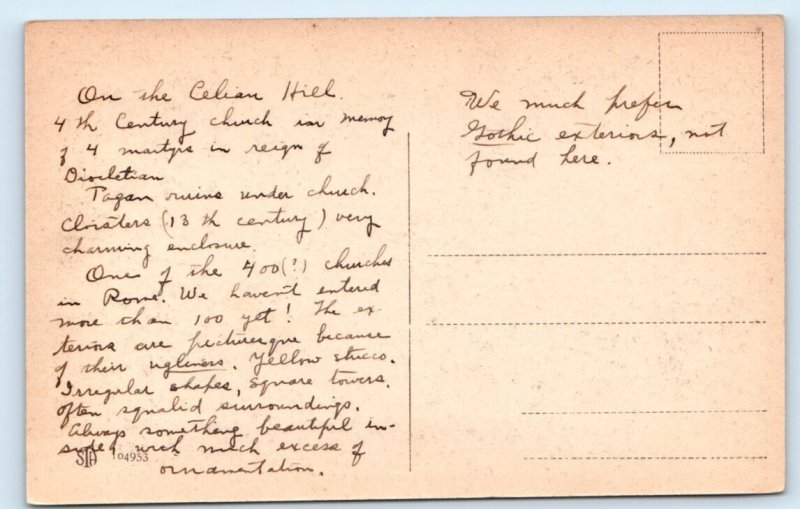 On the Celian Hill.
4th Century church in memory
of 4 martyrs in reign of
Diocletian
Pagan ruins under church.
Cloisters (13th century) very
charming enclosure.
One of the 400(?) churches
in Rome. We haven't entered
more than 100 yet! The ex-
teriors are picturesque because
of their ugliness. Yellow stucco.
Irregular shapes, square towers,
often squalid surroundings.
Always something beautiful in-
side, with much excess of
ornamentation.
STA 04953
We much prefer
Gothic exteriors, not
found here.